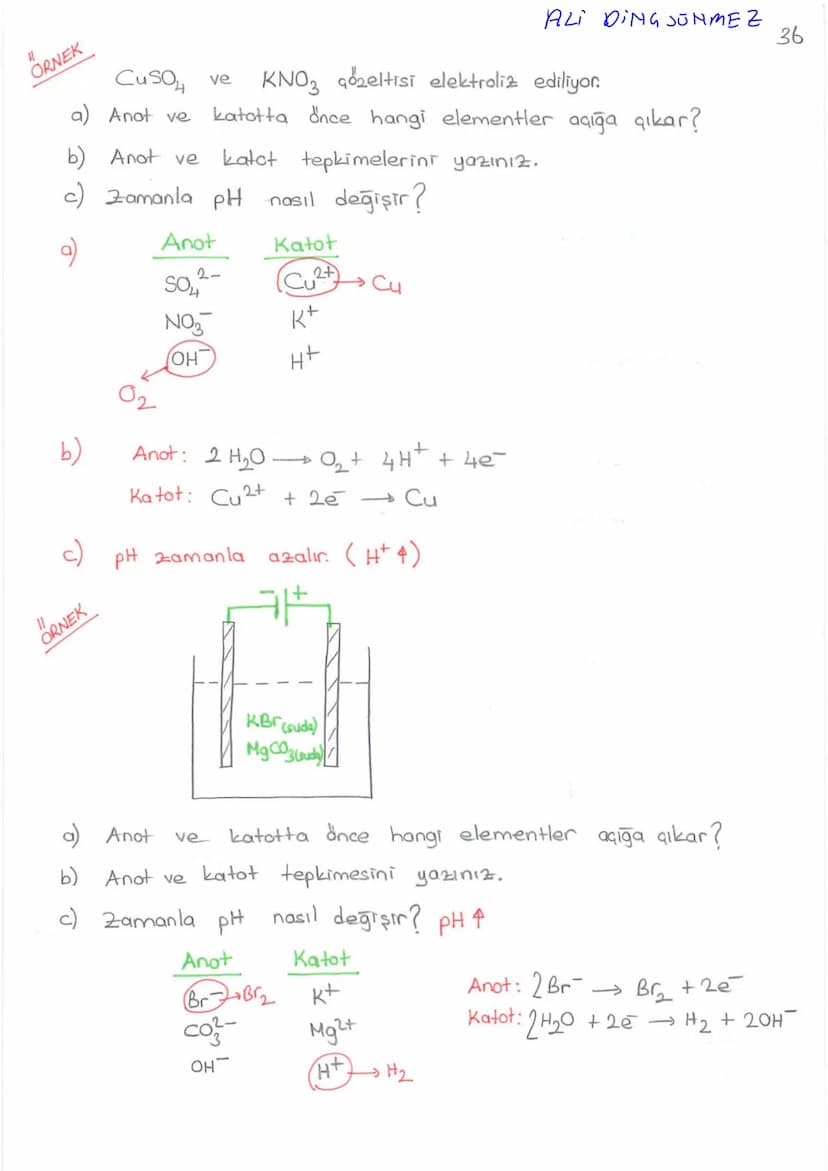 ALİ DİNÇSÖNMEZ
36
ÖRNEK
CuSO₄ ve KNO₃ çözeltisi elektroliz ediliyor.
a) Anot ve katotta önce hangi elementler açığa çıkar?
b) Anot ve katot tepkimelerini yazınız.
c) Zamanla pH nasıl değişir?
a) Anot Katot
SO₄²⁻ Cu²⁺ → Cu
NO₃⁻ K⁺
OH⁻ H⁺
O₂
b) Anot: 2 H₂O → O₂ + 4H⁺ + 4e⁻
Katot: Cu²⁺ + 2e⁻ → Cu
c) pH zamanla azalır. (H⁺ ↑)
ÖRNEK
- +
KBr(suda)
MgCO₃(suda)
a) Anot ve katotta önce hangi elementler açığa çıkar?
b) Anot ve katot tepkimesini yazınız.
c) Zamanla pH nasıl değişir? pH ↑
Anot Katot
Br⁻ → Br₂ K⁺
CO₃²⁻ Mg²⁺
OH⁻ H⁺ → H₂
Anot: 2Br⁻ → Br₂ + 2e⁻
Katot: 2H₂O + 2e⁻ → H₂ + 2OH⁻